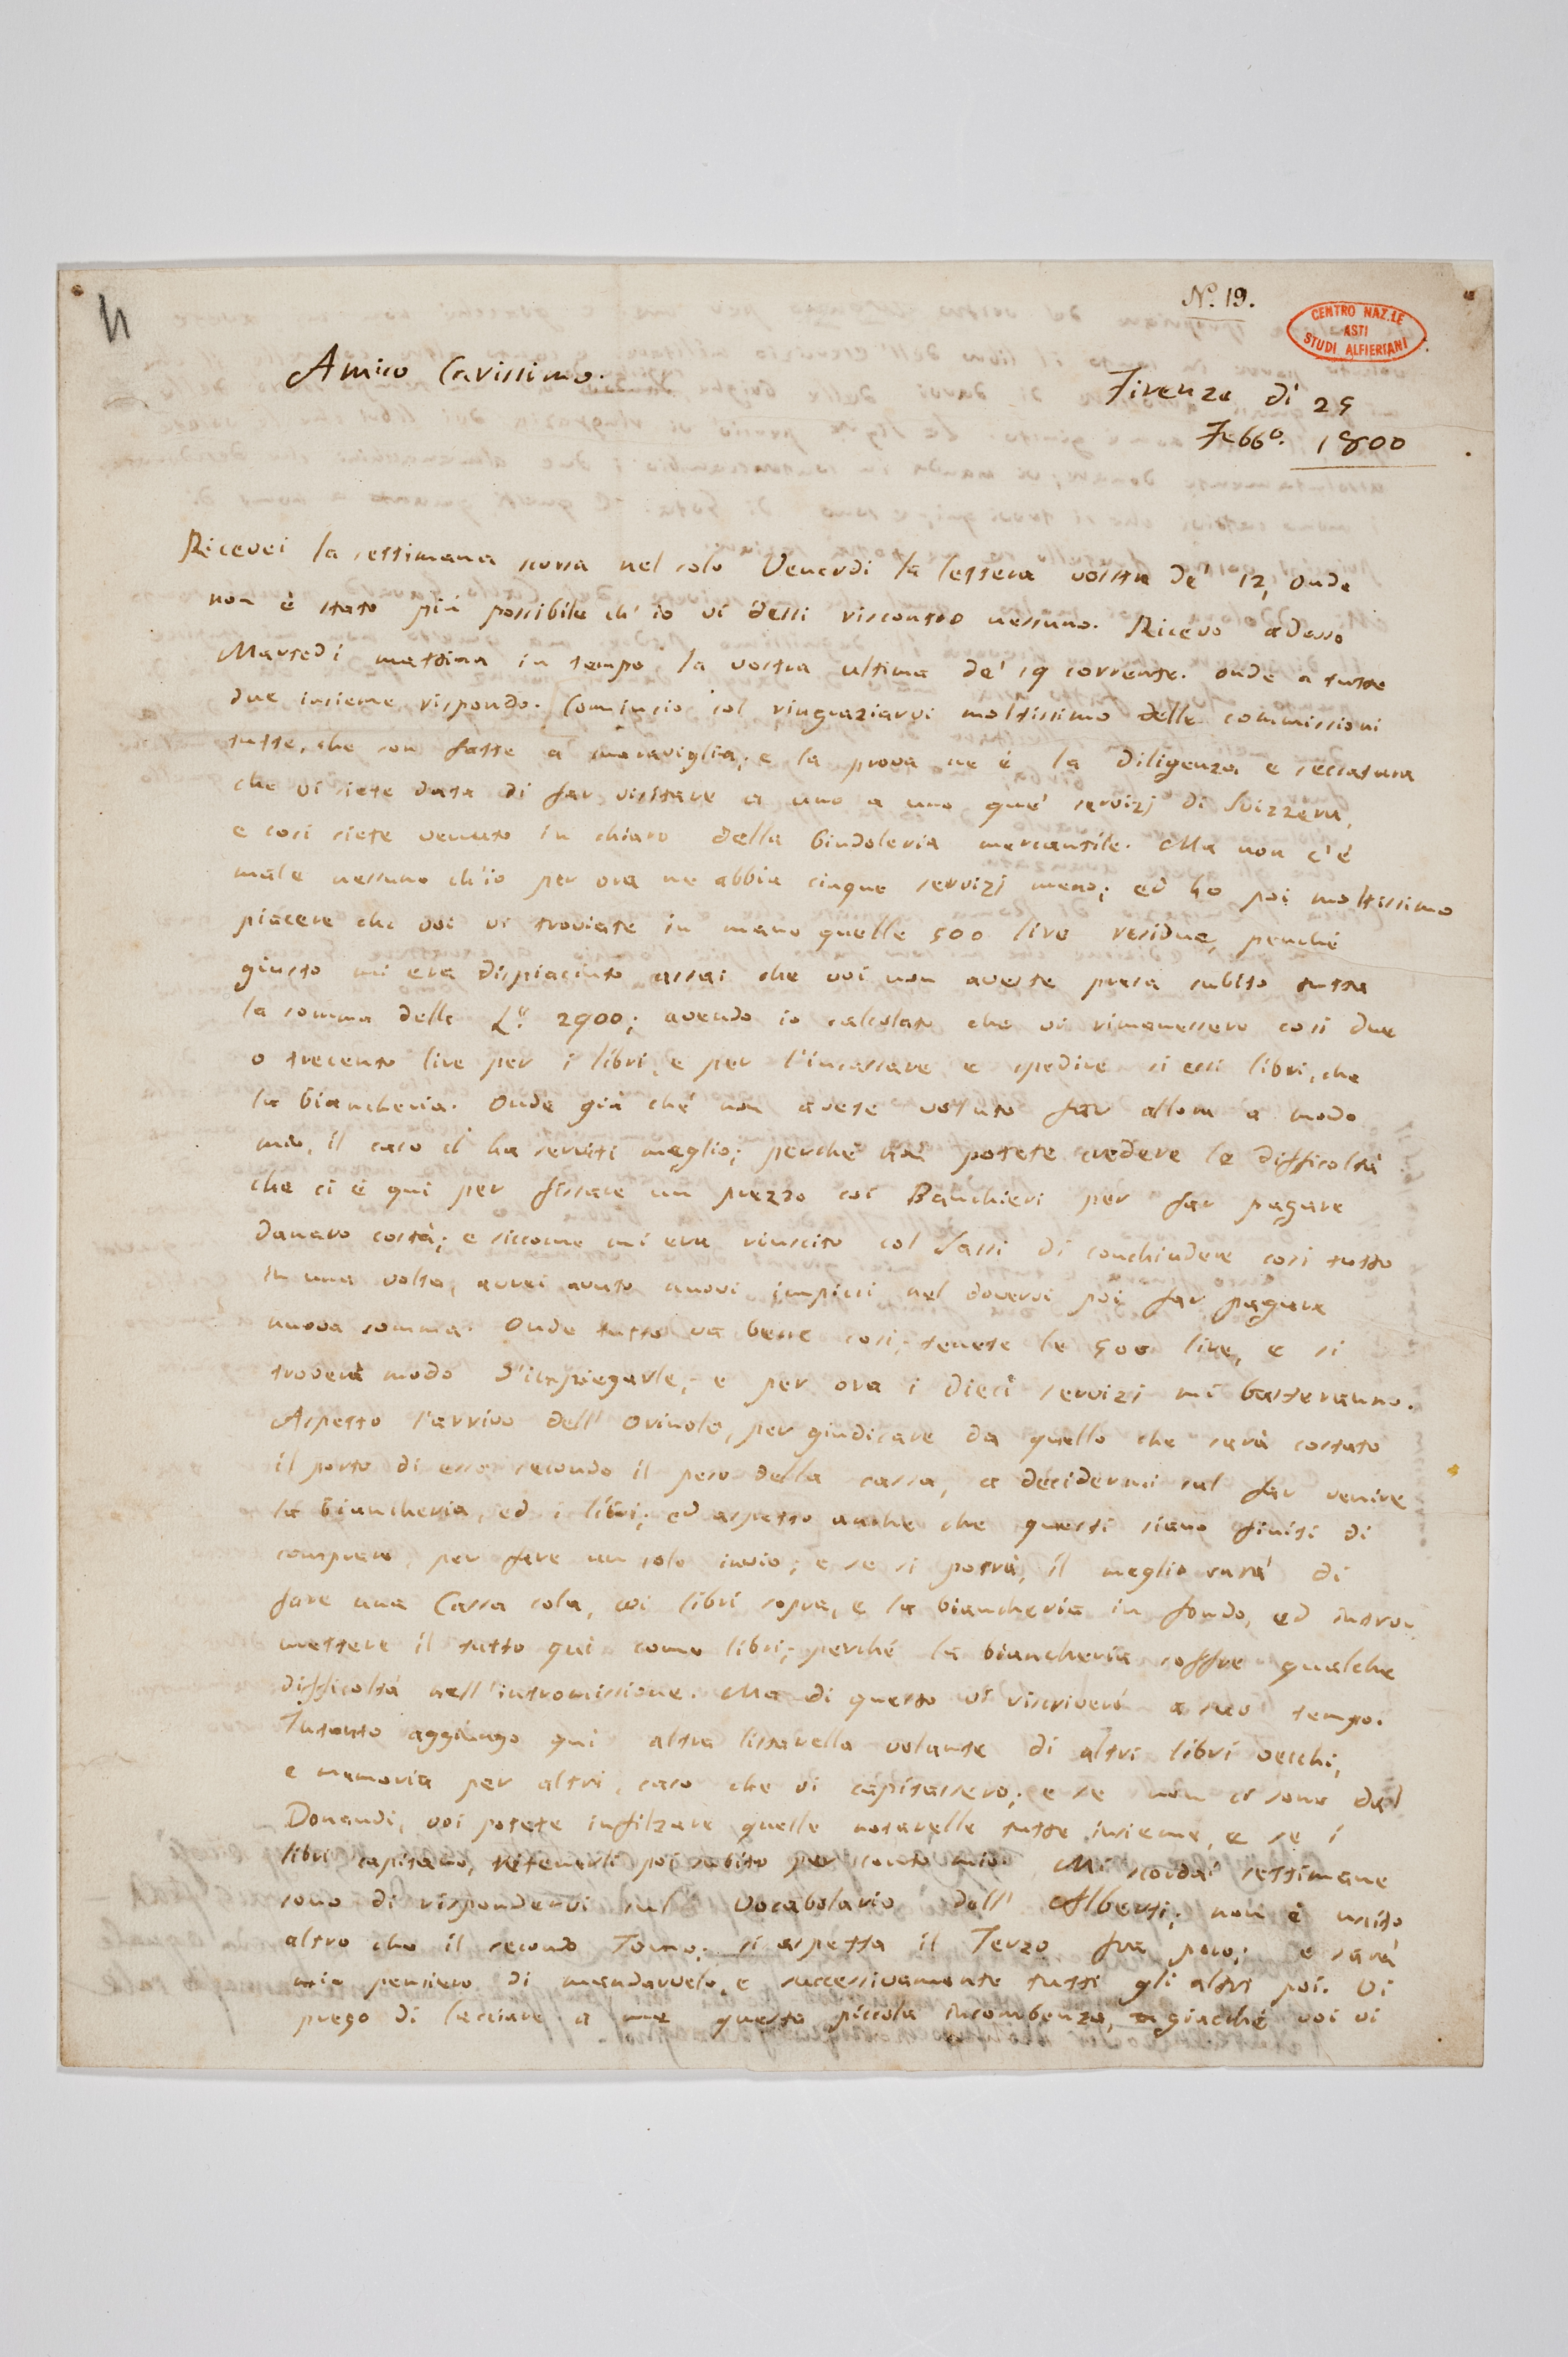 N.° 19.
CENTRO NAZ.LE
ASTI
STUDI ALFIERIANI
Amico Carissimo.
Firenze dì 25
Febb°. 1800
Ricevei la settimana scorsa nel solo Venerdì la lettera vostra de' 12, onde
non è stato più possibile ch'io vi dessi riscontro nessuno. Ricevo adesso
Martedì mattina in tempo la vostra ultima de' 19 corrente. onde a tutte
due insieme rispondo. Comincio col ringraziarvi moltissimo delle commissioni
tutte, che son fatte a maraviglia; e la prova ne è la diligenza e seccatura
che vi siete data di far visitare a uno a uno que' servizj di Svizzera,
e così siete venuto in chiaro della bindoleria mercantile. Ma non c'è
male nessuno ch'io per ora ne abbia cinque servizj meno; ed ho poi moltissimo
piacere che voi vi troviate in mano quelle 500 lire residue, perché
giusto mi era dispiaciuto assai che voi non aveste presa subito tutta
la somma delle L.e 2900; avendo io calcolato che vi rimanessero così due
o trecento lire per i libri, e per l'incassare e spedire sì essi libri, che
la biancheria. Onde già ché non avete voluto far allora a modo
mio, il caso ci ha serviti meglio; perché non potete credere le difficoltà
che ci è qui per fissare un prezzo coi Banchieri per far pagare
danaro costà; e siccome mi era riuscito col Sassi di conchiudere così tutto
in una volta, avrei avuto nuovi impicci nel dovervi poi far pagare
nuova somma. Onde tutto va bene così; tenete le 500 lire, e si
troverà modo d'impiegarle; e per ora i dieci servizj mi basteranno.
Aspetto l'arrivo dell' Orivolo, per giudicare da quello che sarà costato
il porto di esso secondo il peso della cassa, a decidermi sul far venire
la biancheria, ed i libri; ed aspetto anche che questi siano finiti di
comprare, per fare un solo invio; e se si potrà, il meglio sarà di
fare una Cassa sola, coi libri sopra, e la biancheria in fondo, ed intro-
mettere il tutto qui come libri; perché la biancheria soffre qualche
difficoltà nell'intromissione. Ma di questo vi riscriverò a suo tempo.
Intanto aggiungo qui altra listarella volante di altri libri vecchi,
e memoria per altri, caso che vi capitassero; e se non ci sono dal
Donaudi, voi potete infilzare quelle notarelle tutte insieme, e se i
libri capitano, ritenerli poi subito per conto mio. Mi scordai settimane
sono di rispondervi sul Vocabolario dell' Alberti; non è uscito
altro che il secondo Tomo; si aspetta il Terzo fra poco; e sarà
mio pensiero di mandarvelo, e successivamente tutti gli altri poi. Vi
prego di lasciare a me questa piccola incombenza, giacché voi vi